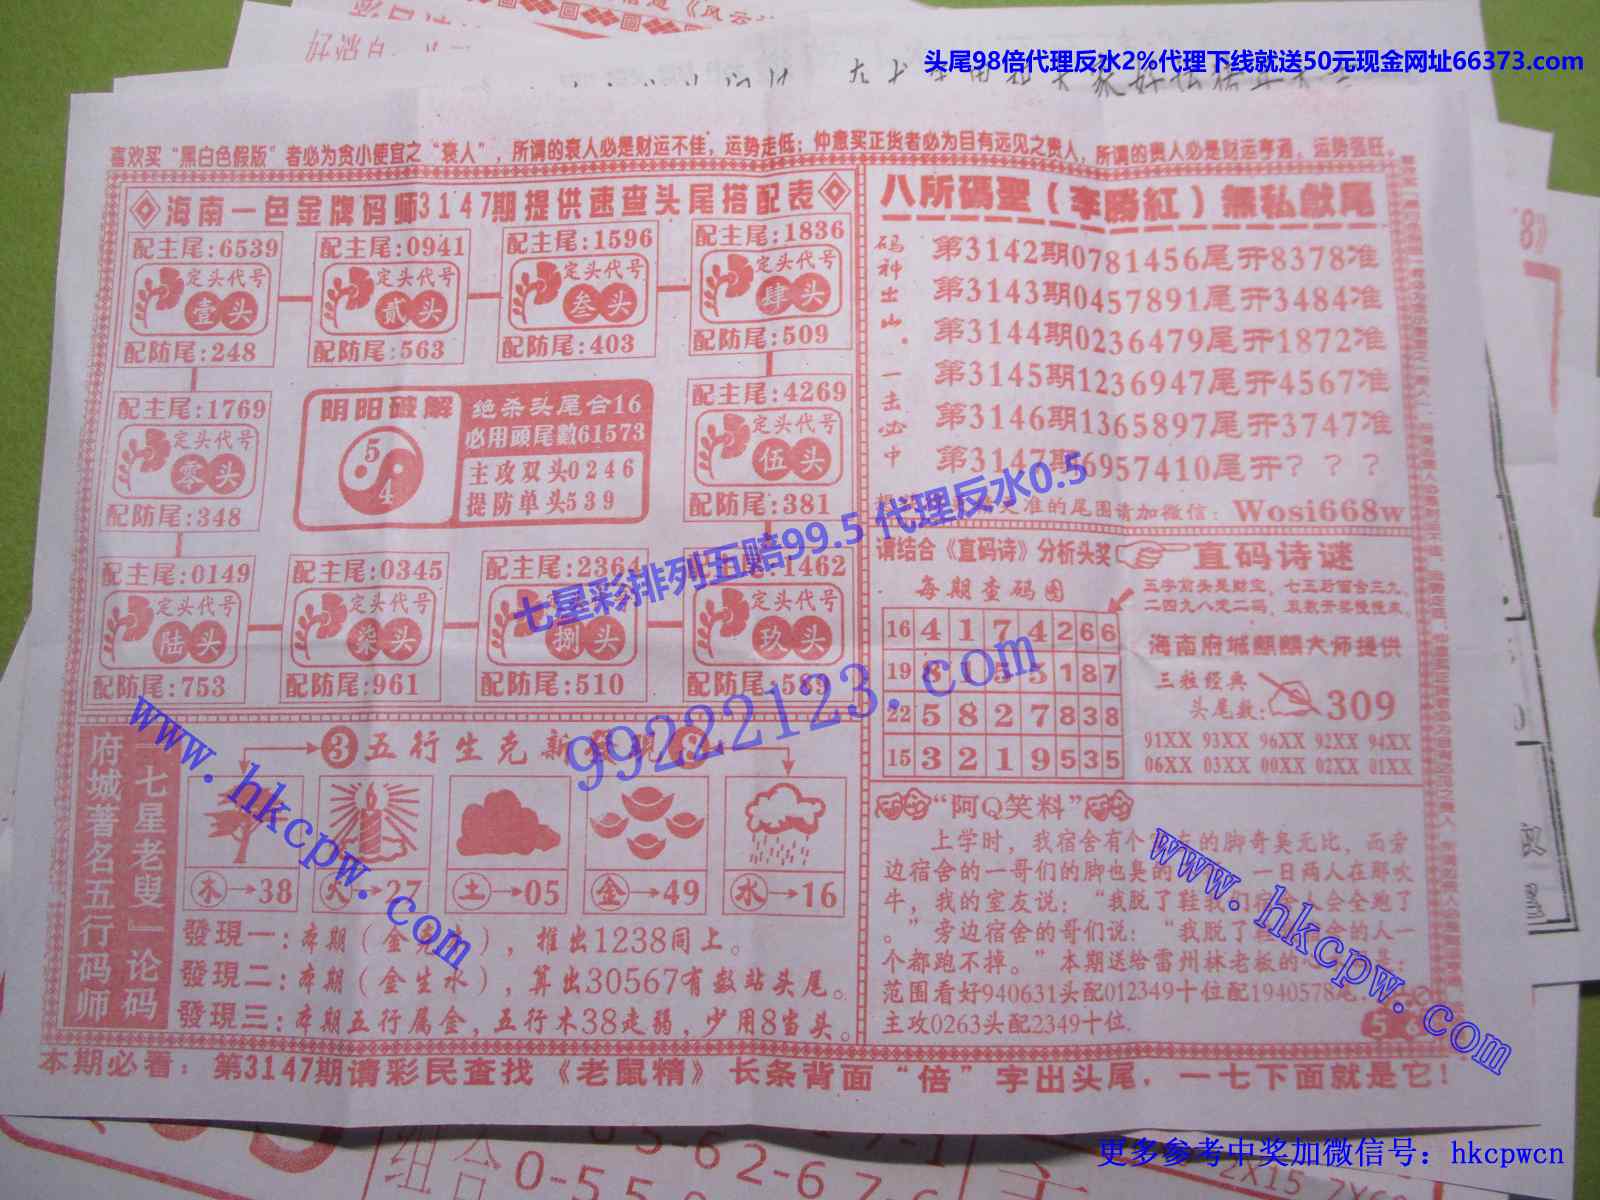 头尾98倍代理反水2%代理下线就送50元现金网址66373.com
喜欢买“黑白色假版”者必为贪小便宜之“衰人”，所谓的衰人必是财运不佳，运势走低；仲意买正货者必为目有远见之贵人，所谓的贵人必是财运亨通，运势强旺。
海南一色金牌码师3147期提供速查头尾搭配表
配主尾:6539 配主尾:0941 配主尾:1596 配主尾:1836
定头代号 定头代号 定头代号 定头代号
壹头 贰头 叁头 肆头
配防尾:248 配防尾:563 配防尾:403 配防尾:509
配主尾:1769
定头代号
零头
配防尾:348
阴阳破解
5
4
绝杀头尾合16
必用頭尾數61573
主攻双头0246
提防单头539
配主尾:4269
定头代号
伍头
配防尾:381
配主尾:0149 配主尾:0345 配主尾:2364 配主尾:1462
定头代号 定头代号 定头代号
陆头 柒头 捌头 玖头
配防尾:753 配防尾:961 配防尾:510 配防尾:589
八所碼聖(李勝紅)無私獻尾
码神出山·一击必中
第3142期0781456尾开8378准
第3143期0457891尾开3484准
第3144期0236479尾开1872准
第3145期1236947尾开4567准
第3146期1365897尾开3747准
第3147期6957410尾开???
准的尾图请加微信: Wosi668w
请结合《直码诗》分析头奖
直码诗谜
每期查码图
五字前头是财定，七五方面合三九。
二四九八零二码，双数开奖慢慢来。
16 4 1 7 4 2 6 6
19 8 1 5 5 1 8 7
22 5 8 2 7 8 3 8
15 3 2 1 9 5 3 5
海南府城麒麟大师提供
三粒经典
头尾数:
309
91XX 93XX 96XX 92XX 94XX
06XX 03XX 00XX 02XX 01XX
“阿Q笑料”
上学时，我宿舍有个 的脚奇臭无比，而旁
边宿舍的一哥们的脚也臭的 一日两人在那吹
牛，我的室友说：“我脱了鞋我们宿舍人会全跑了
。”旁边宿舍的哥们说：“我脱了鞋 舍的人一
个都跑不掉。”本期送给雷州林老板的心
范围看好940631头配012349十位配1940578尾
主攻0263头配2349十位.
5 6
府城著名五行码师
『七星老叟』论码
3 五行生克新发现
木→38 火→27 土→05 金→49 水→16
發現一:本期(金克 )，推出1238同上。
發現二:本期(金生水)，算出30567有数站头尾。
發現三:本期五行属金，五行木38走弱，少用8当头。
本期必看：第3147期请彩民查找《老鼠精》长条背面“倍”字出头尾，一七下面就是它!
七星彩排列五赔99.5 代理反水0.5
99222123.com
www.hkcpw.com
www.hkcpw.com
更多参考中奖加微信号：hkcpwcn
组合